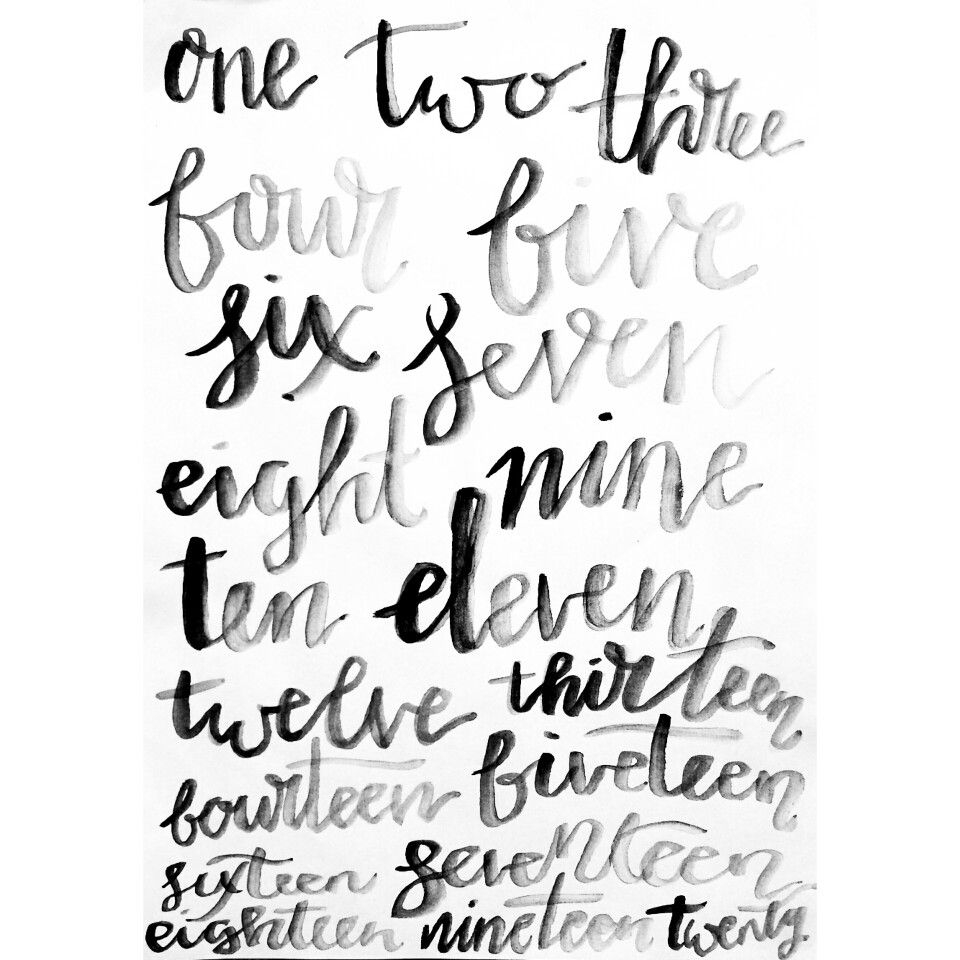 one two three
four five
six seven
eight nine
ten eleven
twelve thirteen
fourteen fiveteen
sixteen seventeen
eighteen nineteen twenty.